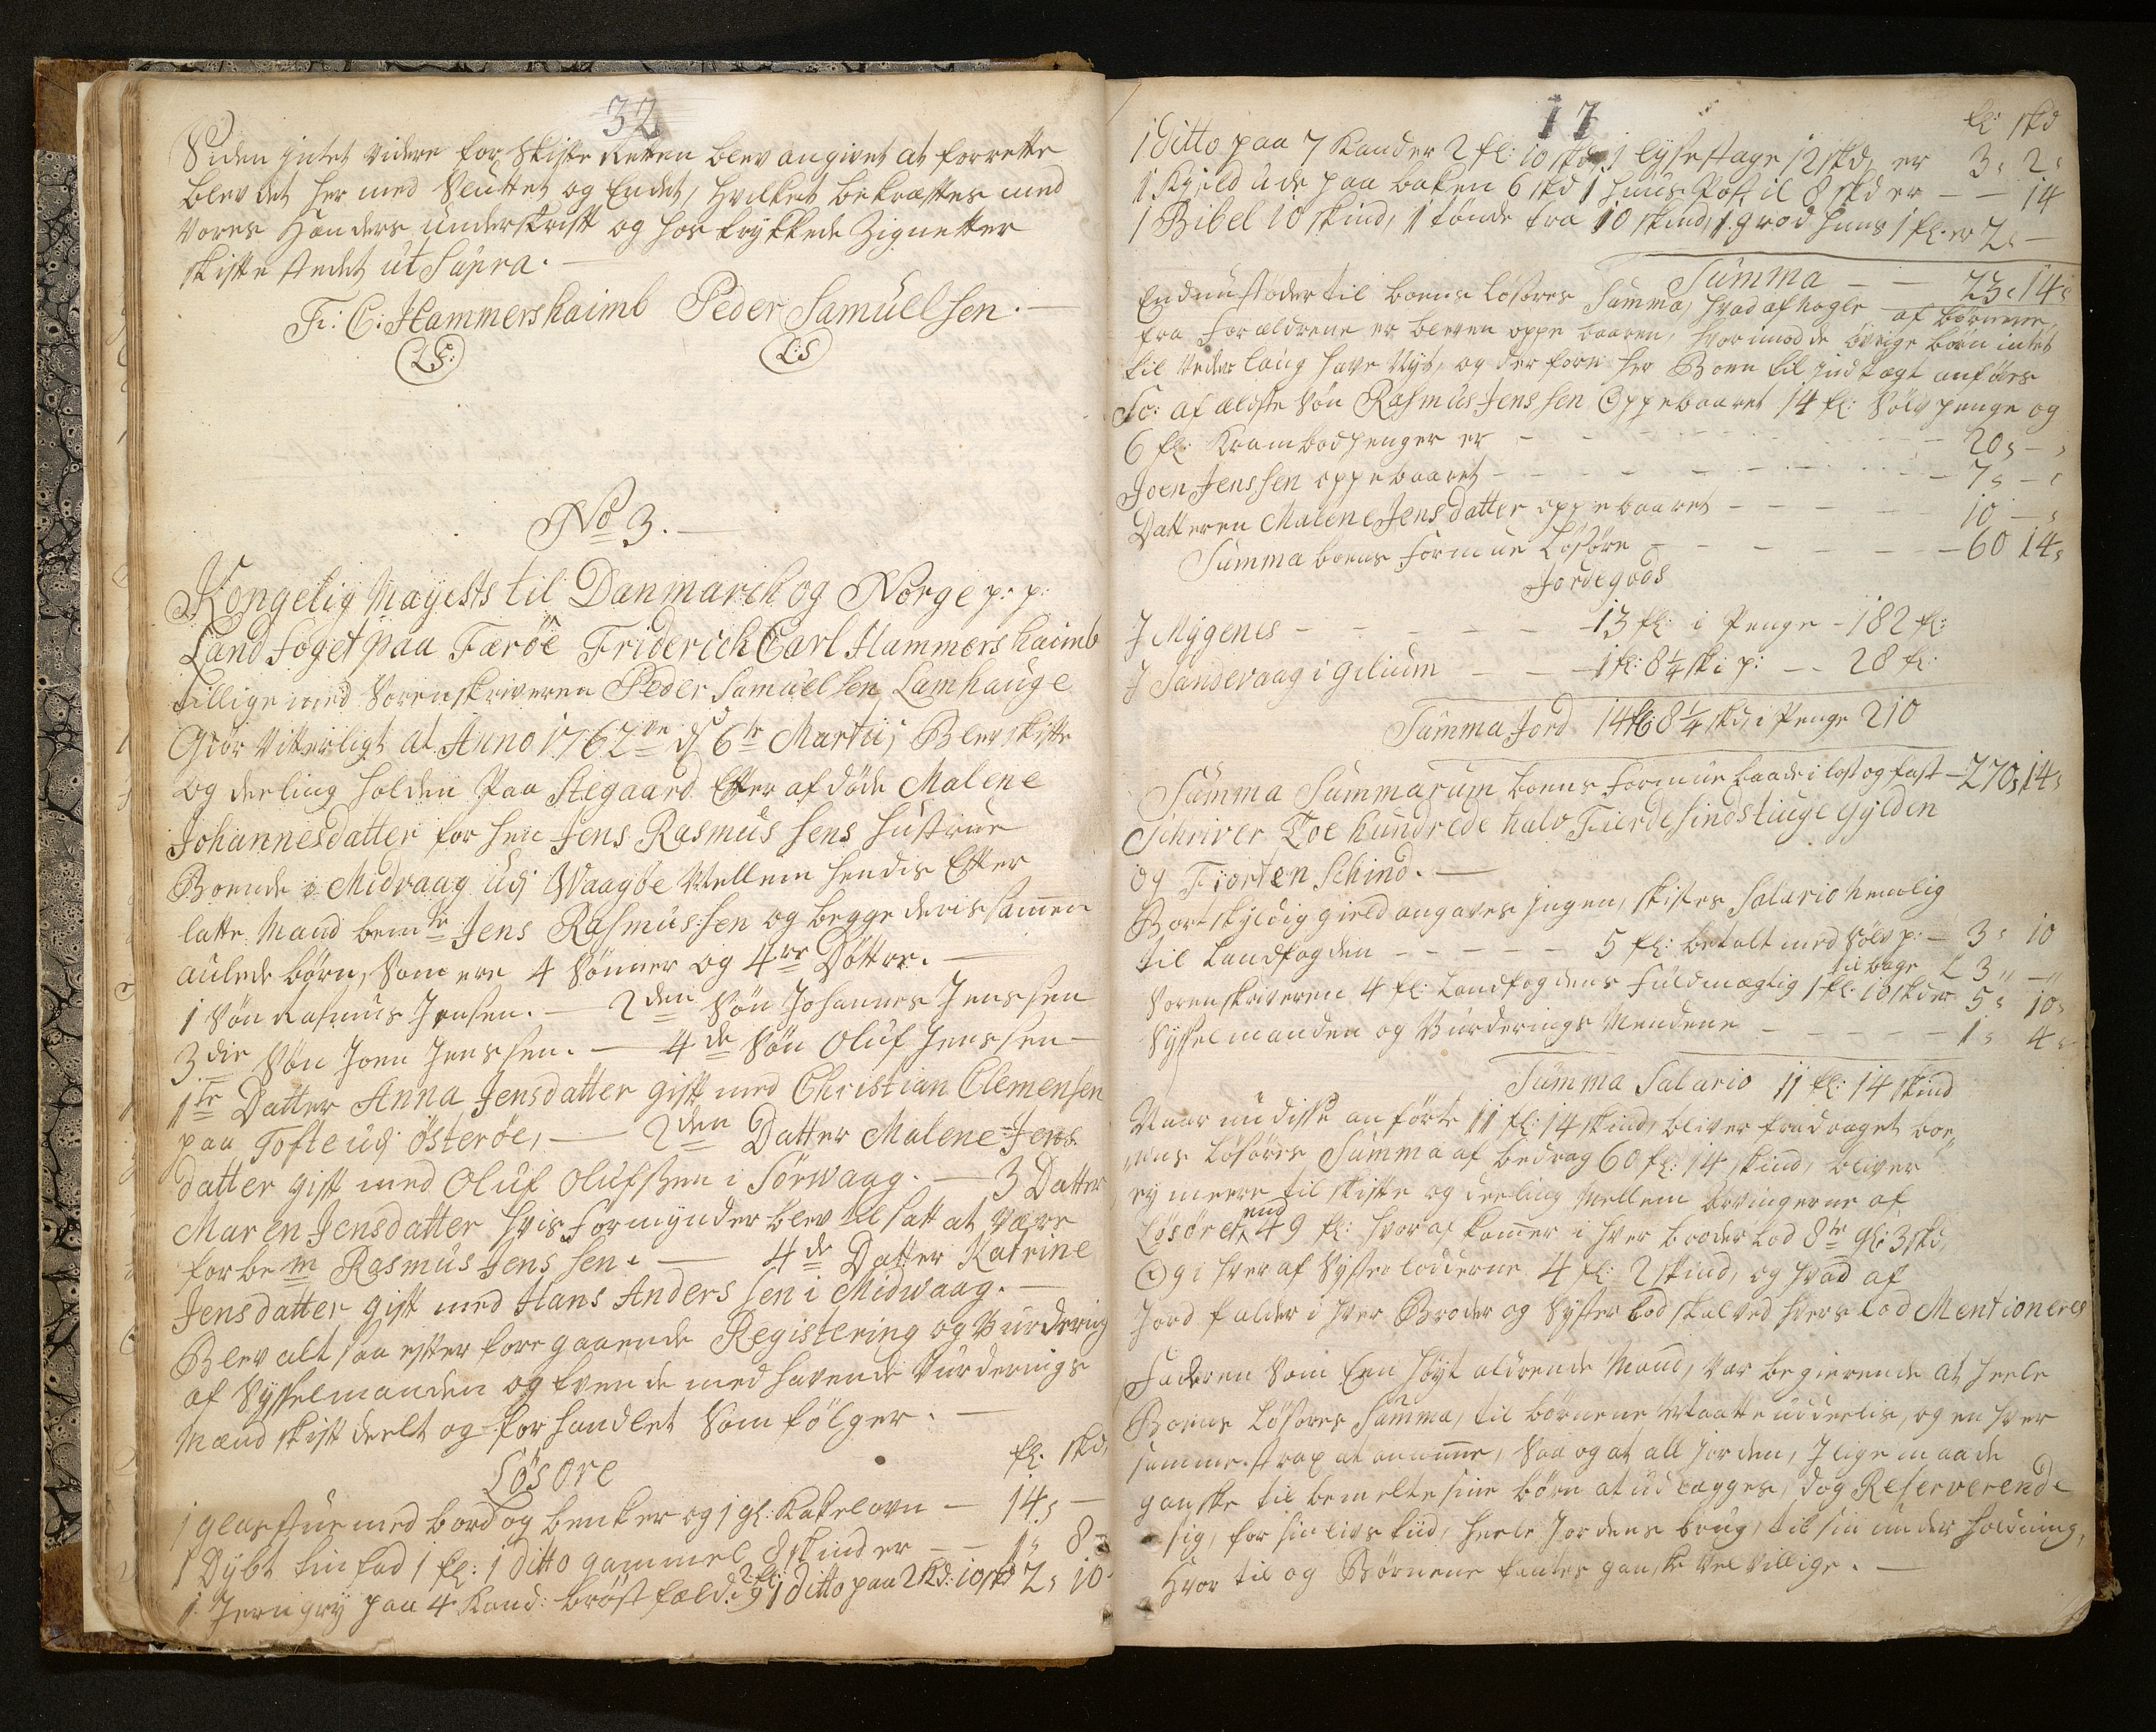 32
Siden intet videre for Skifte Retten blev angivet at forrette
blev det her med Sluttet og Endet, Hvilket bekræftes med
Vores Hænders Underskrift og hos trykkede Zignetter
skiftestedet ut Supra.
Fr: C: Hammershaimb Peder Samuelsen.
LS: L:S
No 3.
Kongelig Mayests til Danmarck og Norge p: p:
Land foget paa Færöe Friderich Carl Hammershaimb
tillige med Sorenskriveren Peder Samuelsen Lamhauge
Giör Vitterligt at Anno 1762 ve d 6te Martii, Blev skifte
og deeling holden Paa Stegaard Efter afdöde Malene
Johannesdatter for hen Jens Rasmussens Hustrue
Boende i Midvaag udj Waagöe Mellem hendes Efter
latte Mand bemte Jens Rasmussen og begge deris sammen
aulede börn, Som ere 4 Sönner og 4re Döttre.
1 Sön Rasmus Jensen. — 2den Sön Johannes Jenssen
3die Sön Joen Jenssen. — 4de Sön Oluf Jenssen —
1te Datter Anna Jensdatter gift med Christian Clemensen
paa Tofte udj Österöe, — 2den Datter Malene Jens
datter gift med Oluf Olufsen i Sörwaag. — 3 Datter
Maren Jensdatter hvis Formynder blev tilsatt at være
forbem Rasmus Jenssen. — 4de Datter Katrine
Jensdatter gift med Hans Anderssen i Midwaag. —
Blev alt saa efter foregaaende Registering og Vurdering
af Sysselmanden og tvende med havende Vurderings
Mænd skift deelt og forhandlet Som fölger. —
fl: skd
Lösöre
1 glasstue med bord og benker og 1 gl: Kakelovn — 14, —
1 Dybt tinfad 1 fl: 1 ditto gammel 8 skind er — 1, 8
1 Jerngry paa 4 Kand: bröstfæld. 2 fl: 1 ditto paa 2 Kd: 10 skd 2, 10
17
fl: skd
1 Ditto paa 7 Kander 2 fl: 10 skd, 1 lysestage 12 skd, er 3, 2,
1 Kjeld ude paa baken 6 skd 1 8 skd er — — 14
1 Bibel 10 skind, 1 tönde tra 10 skind, 1 grod huus 1 fl. er 2, —
Summa — — 23, 14,
Endnu stöder til boens lösöres Summa, hvad af nogle af börnene
fra Forældrene er bleven oppebaaren, hvorimod de övrige börn intet
til Vederlaug have Nyt, og derfore her Boen til Indtægt anföres
So: af ældste Sön Rasmus Jenssen Oppebaaret 14 fl: Sölv penge og
6 fl: Krambodpenger er — — — 20, —
Joen Jenssen oppebaaret — — — 7, —
Datteren Malene Jensdatter oppebaaret — — — 10 —
Summa boens Formue Lösöre — — — 60 14,
Jordegods
I Mygenes — — — 13 fl: i Penge — 182 fl:
I Sandevaag i Gilium — — 1 fl: 8 1/4 sk i p: — 28 fl:
Summa Jord 14 fl: 8 1/4 skd, i Penge 210
Summa Summarum boens Formue baade i löst og fast — 270, 14,
Schriver Toe hundrede halv Fierdesindstiuge Gylden
og Fiorten Schind. —
Bortskyldig gield angaves Ingen, skiftes Salario Nemlig
til Landfogden — — — 5 fl: betalt med Sölv p: — 3, 10
tilbage 3 „ — „
Sorenskriveren 4 fl: Landfogdens Fuldmægtig 1 fl: 10 sk der 5, 10,
Sysselmanden og Vurderings Mendene — — — 1, 4,
Summa Salario 11 fl: 14 skind
Naar nu disse anförte 11 fl: 14 skind, bliver fradraget boe„
ens lösöres Summa af bedrag 60 fl: 14 skind, bliver
ey meere til skifte og deeling Mellem Arvingerne af
Lösöret, end 49 fl: hvoraf kommer i hver broder lod 8te gl: 3 skd,
Og i hver af Systerlodderne 4 fl: 2 skind, og hvad af
Jord falder i hver Broder og Syster Lod skal ved hvers lod Mentioneres
Faderen Som Een höyt aldrende Mand, var begierende at heele
Boens Lösöres Summa, til börnene Maatte uddeelis, og en hver
samme strax at annamme, Saa og at all Jorden, I lige maade
ganske til bemelte sine börn at udlægges, dog Reserverende
sig, for sin livs tid, heele Jordens brug, til sin under holdning,
hvor til og Börnene fantes ganske Vel Villige. —